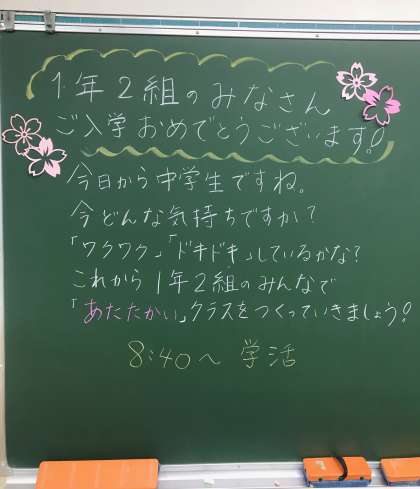 1年2組のみなさん
ご入学おめでとうございます!
今日から中学生ですね。
今どんな気持ちですか?
「ワクワク」「ドキドキ」しているかな?
これから1年2組のみんなで
「あたたかい」クラスをつくっていきましょう!
8:40~ 学活